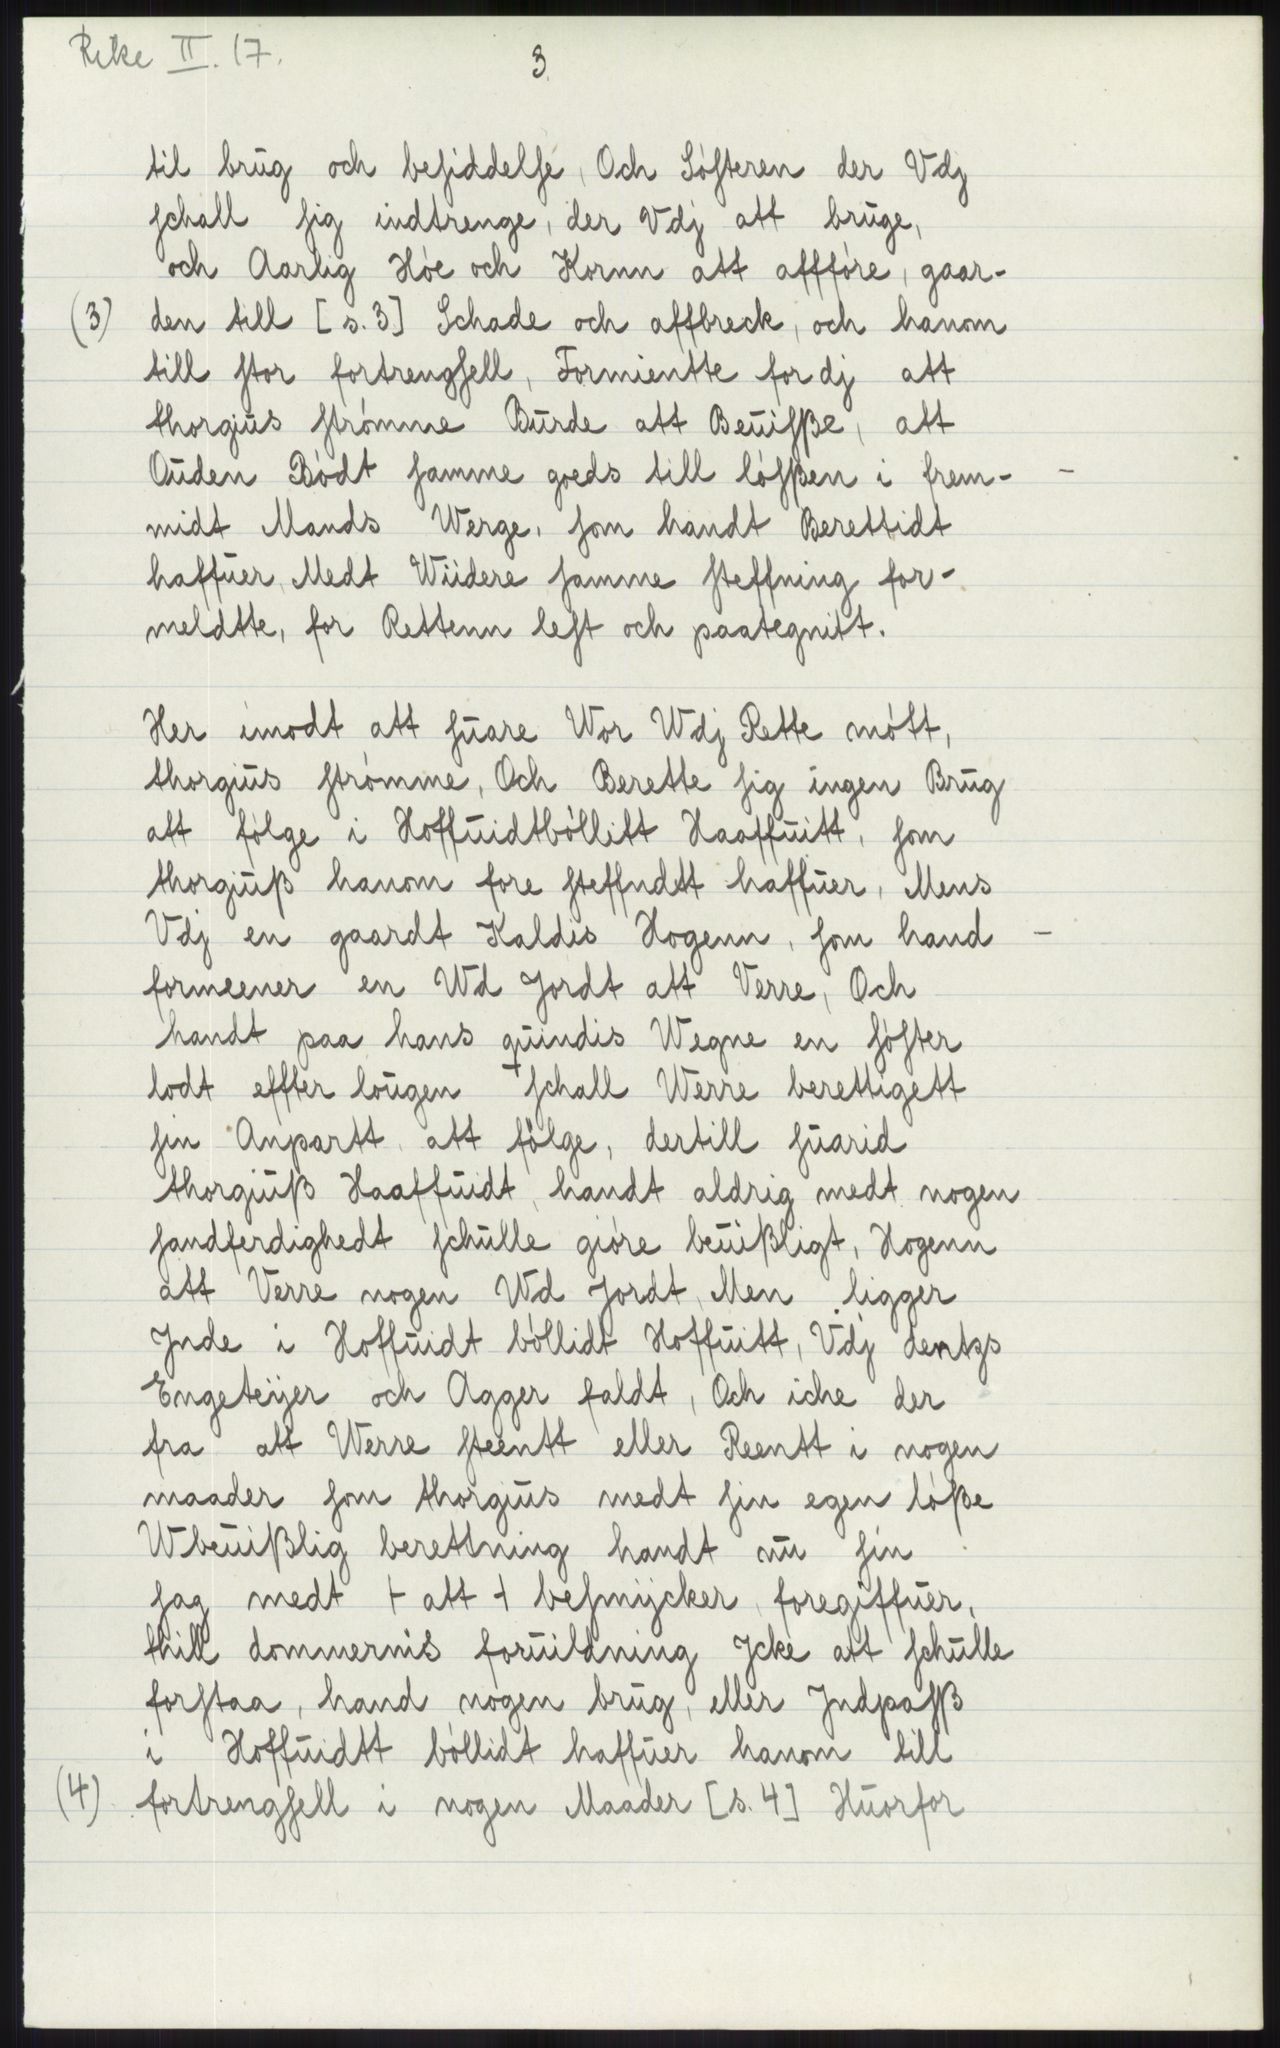 Reke II. 17.
3
til brug och besiddelse, Och Sósteren der Vdj
schall sig indtrenge, der Vdj att bruge,
och Aarlig Hóe och Kornn att affföre, gaar-
(3) den till [s. 3] Schade och affbreck, och hanom
till stor fortrengsell, Formientte for dj att
thorgius strómme Burde att Beuisße, att
Ouden Bódt samme goeds till lósßen i frem-
midt Mands Werge, som handt Berettidt
haffuer, Medt Wiidere samme steffning for-
meldtte, for Rettenn lest och paategnitt.
Her imodt att suare Wor Wdj Rette mótt,
thorgius strómme, Och Berette sig ingen Brug
att fólge i Hoffuidtbóllitt Haaffuitt, som
thorgiuß hanom fore steffndtt haffuer, Mens
Vdj en gaardt Kaldis Hogenn, som hand
formeener en Wd Jordt att Verre, Och
handt paa hans quindis Wegne en sóster
lodt effter lougen + schall Werre berettigett
sin Anpartt att fólge, dertill suarid
thorgiuß Haaffuidt, handt aldrig medt nogen
sandferdighedt schulle gióre beuißligt, Hogenn
att Verre nogen Wd Jordt, Men ligger
Jnde i Hoffuidt bóllidt Hoffuitt, Vdj dentzs
Engeteijer och Agger faldt, Och iche der
fra att Werre steentt eller Reentt i nogen
maader som thorgius medt sin egen lóße
Wbeuißlig berettning handt nu sin
sag medt + att + besmijcker, foregiffuer,
thill dommernis foruildning Jcke att schulle
forstaa, hand nogen brug, eller Jndpasß
i Hoffuidtt bóllidt haffuer hanom till
(4) fortrengsell i nogen Maader [s. 4] Huorfor